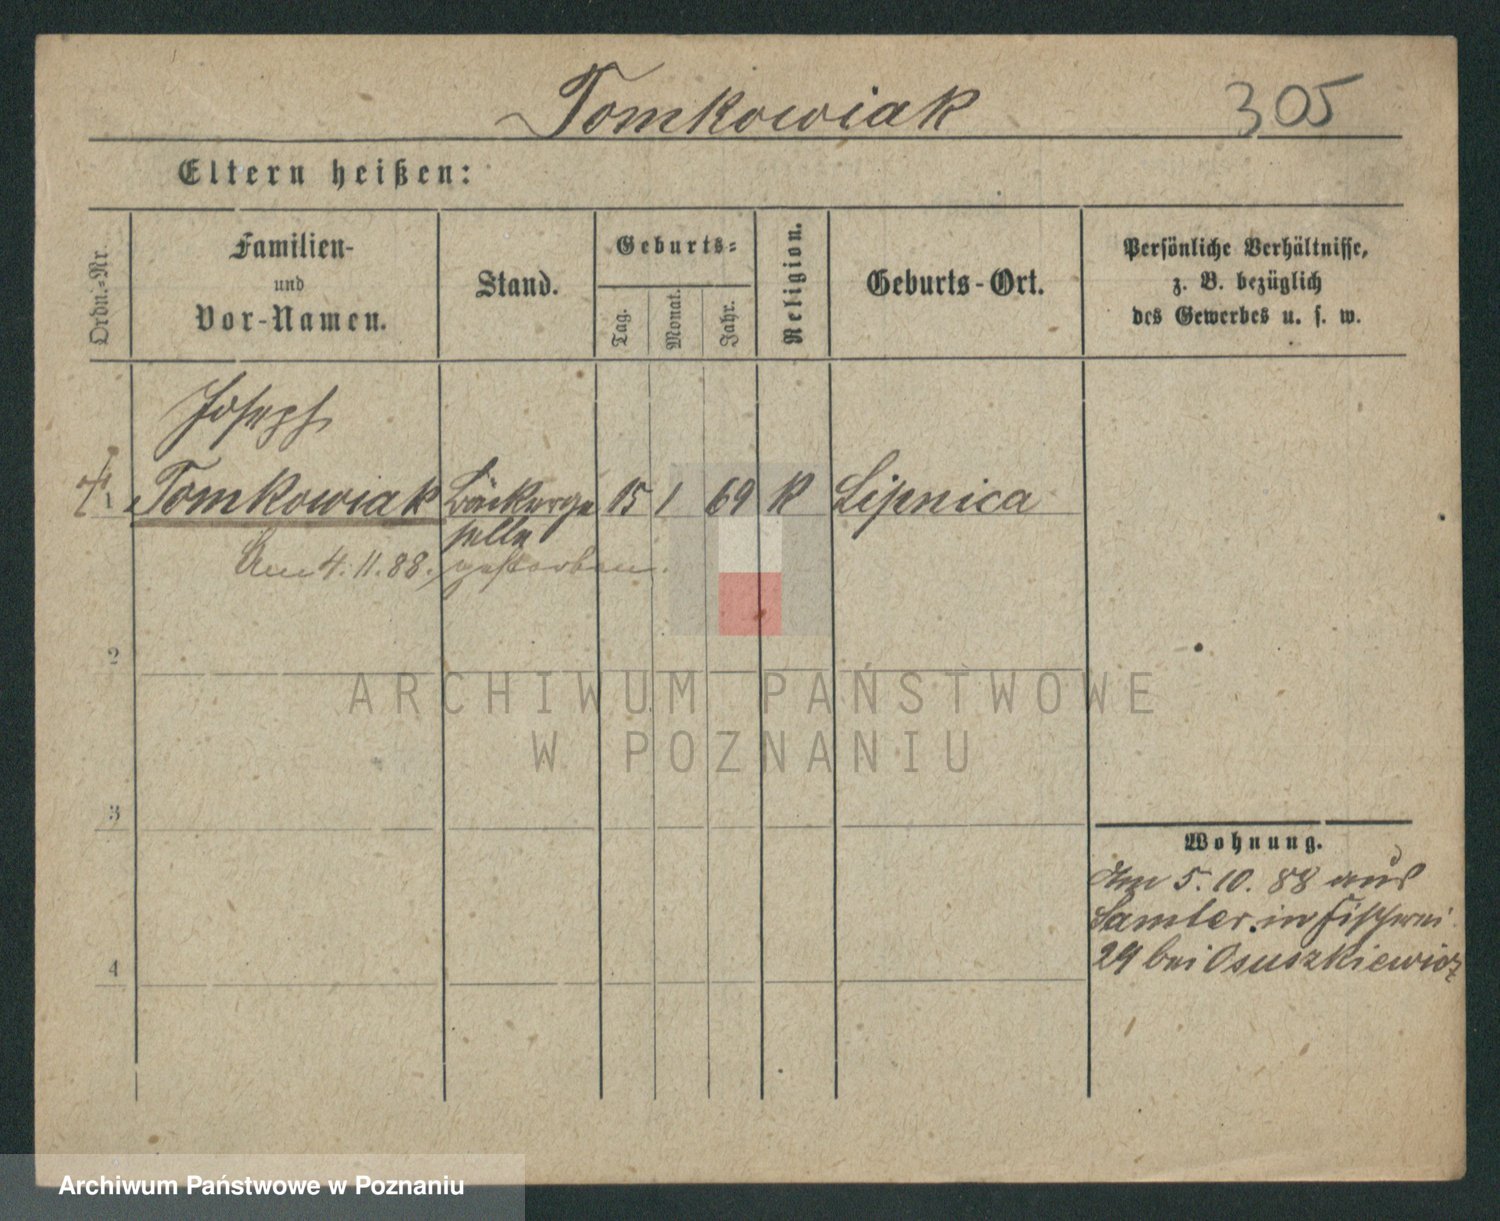 Tomkowiak 305
Eltern heißen:
Ordn.-Nr.
Familien-
und
Vor-Namen.
Stand.
Geburts-
Tag.
Monat.
Jahr.
Religion.
Geburts-Ort.
Persönliche Verhältnisse,
z. B. bezüglich
des Gewerbes u. s. w.
Joseph
1 Tomkowiak Bäckerge 15 1 69 K Lipnica
selle
Am 4.11.88. gestorben.
2
ARCHIWUM PAŃSTWOWE
W POZNANIU
3
Wohnung.
Am 5.10.88 aus
Samter in Fischerei
29 bei Osuszkiewicz
4
Archiwum Państwowe w Poznaniu